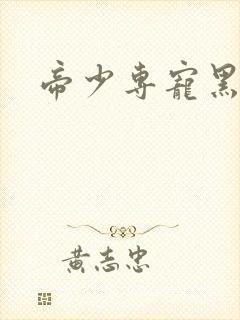 帝少专寵黑
黃志忠